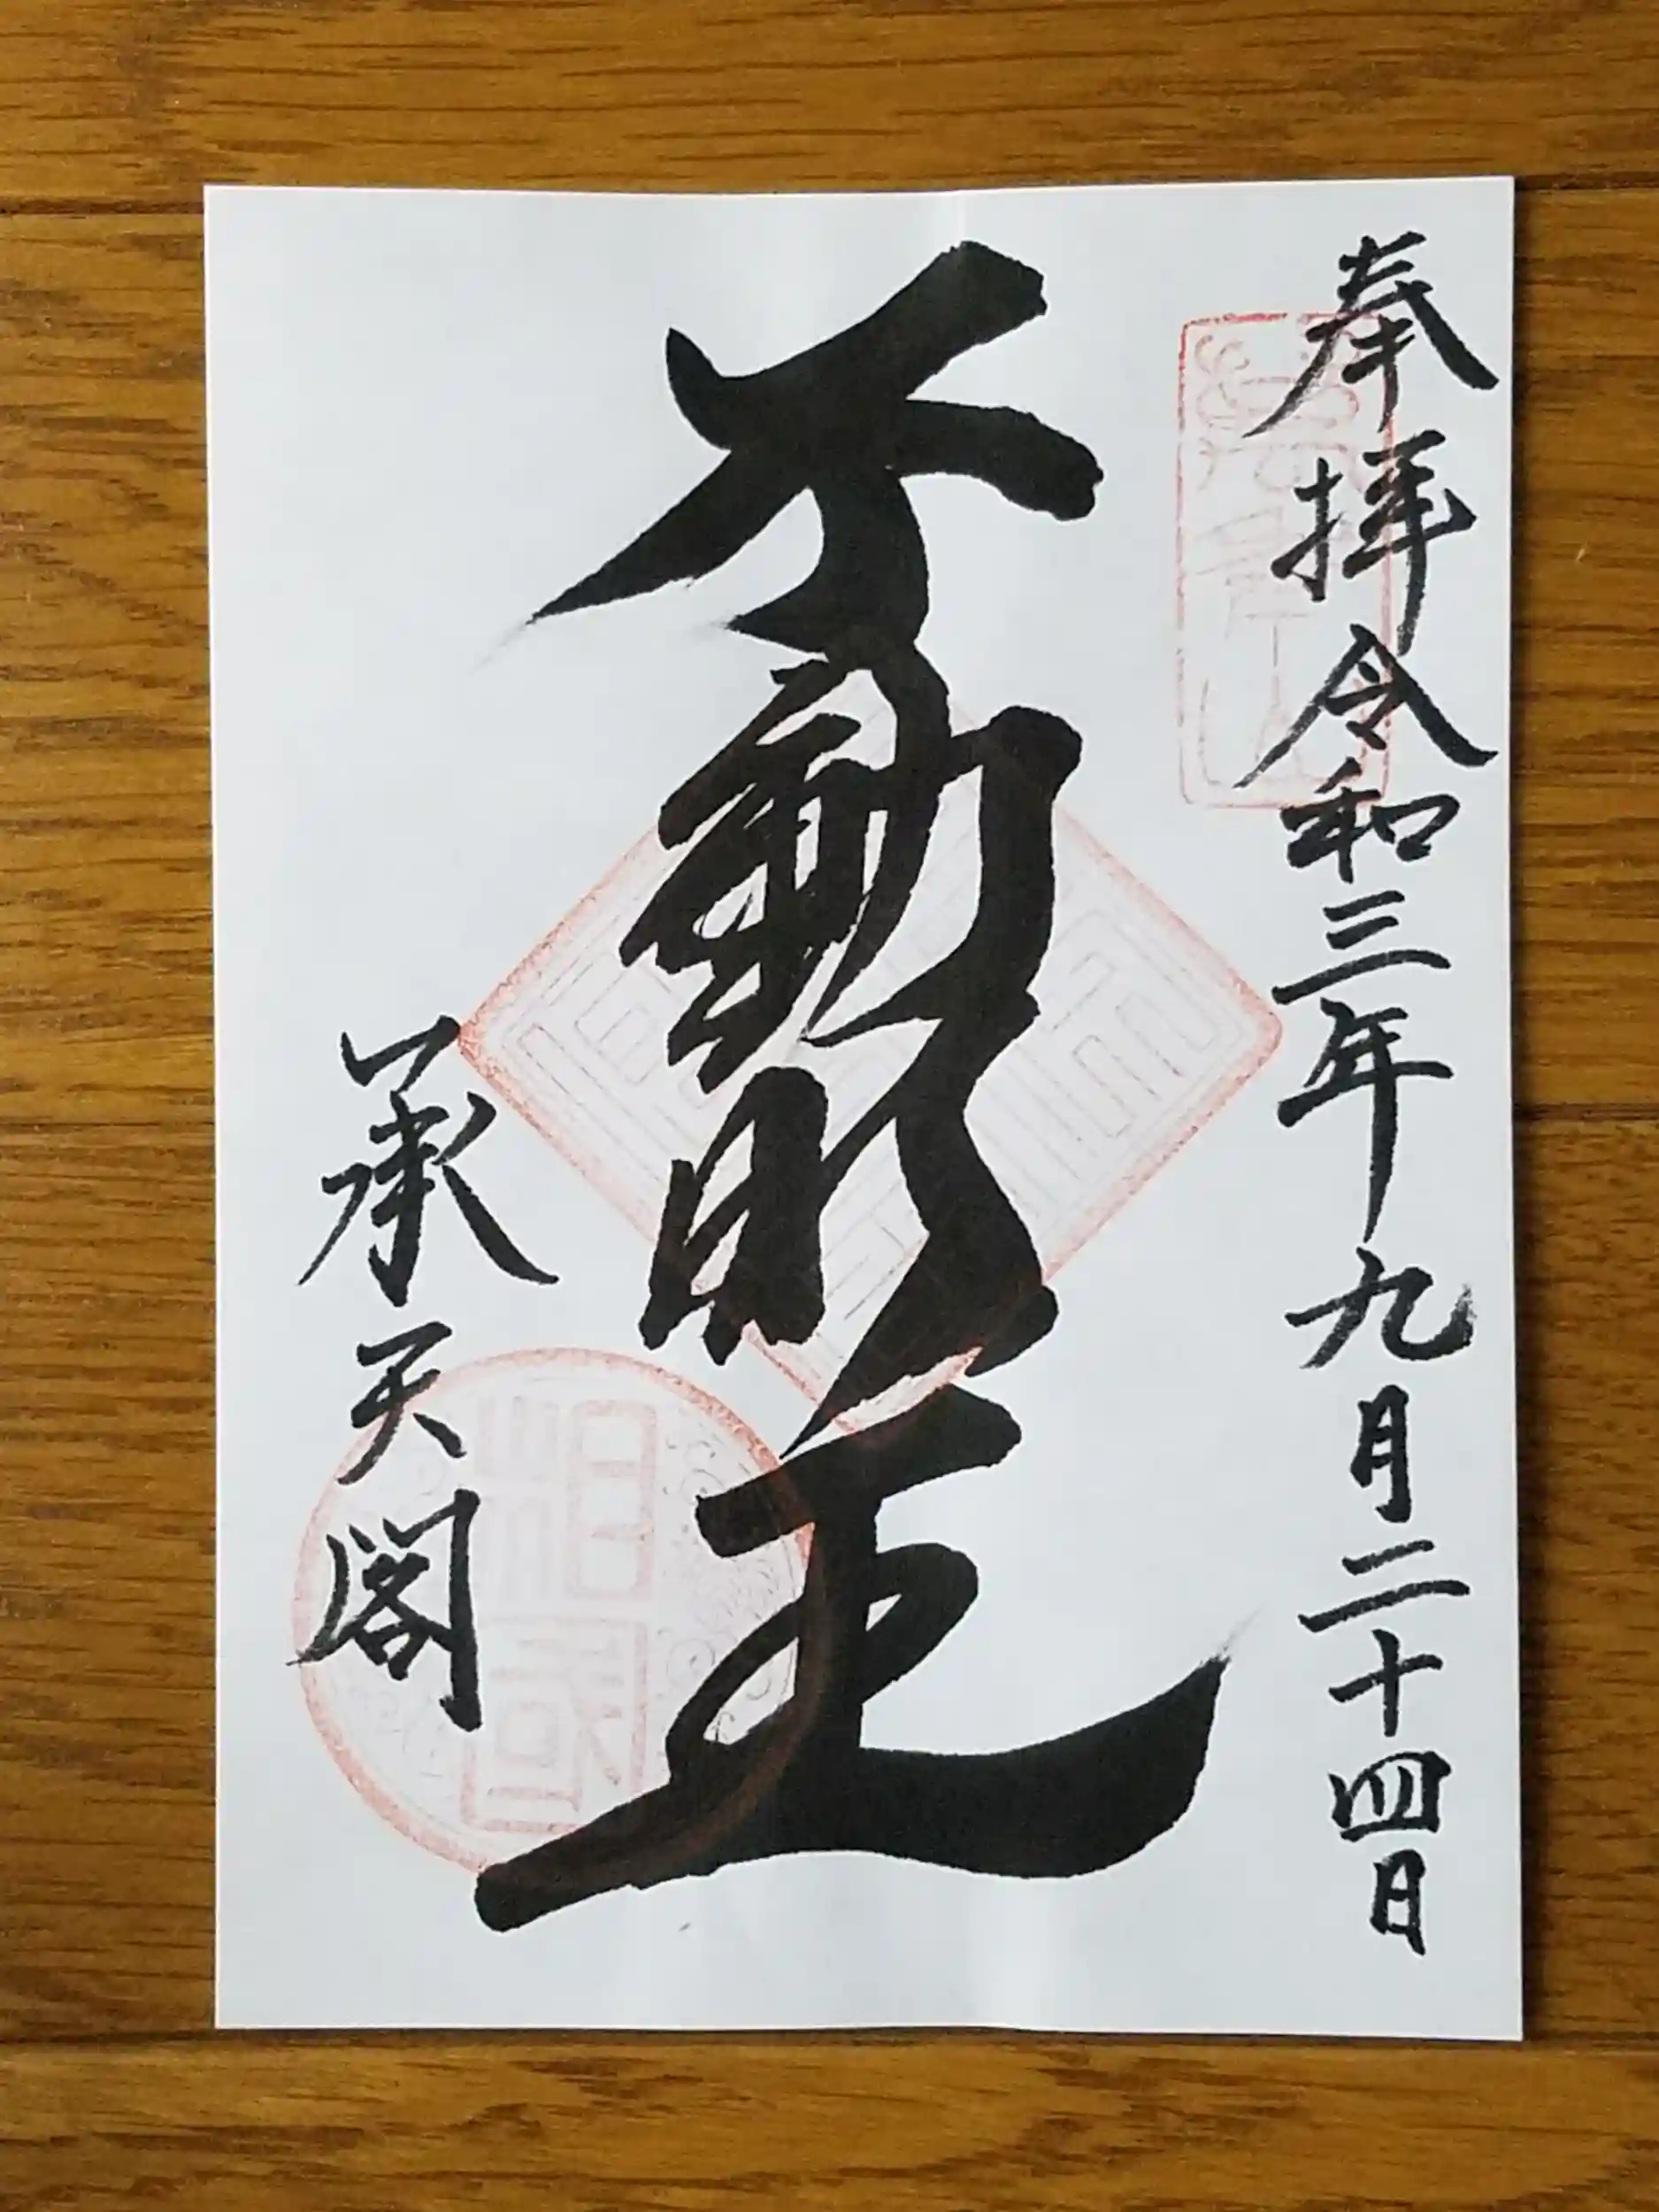 奉拝令和三年九月二十四日
不動明王
承天閣
相國